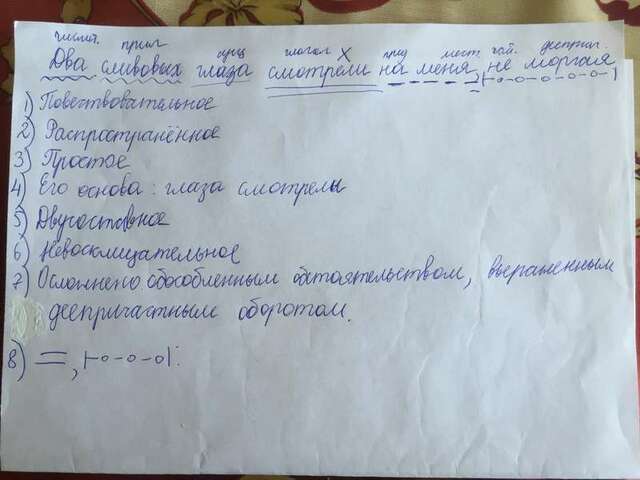 числит. прил сущ глагол X пред мест. част. дееприч.
Два сливовых глаза смотрели на меня, не моргая
1) Повествовательное
2) Распространённое
3) Простое
4) Его основа: глаза смотрелы
5) Двусоставное
6) Невосклицательное
7) Осложнено обособленным обстоятельством, выраженным
деепричастным оборотом.
8)